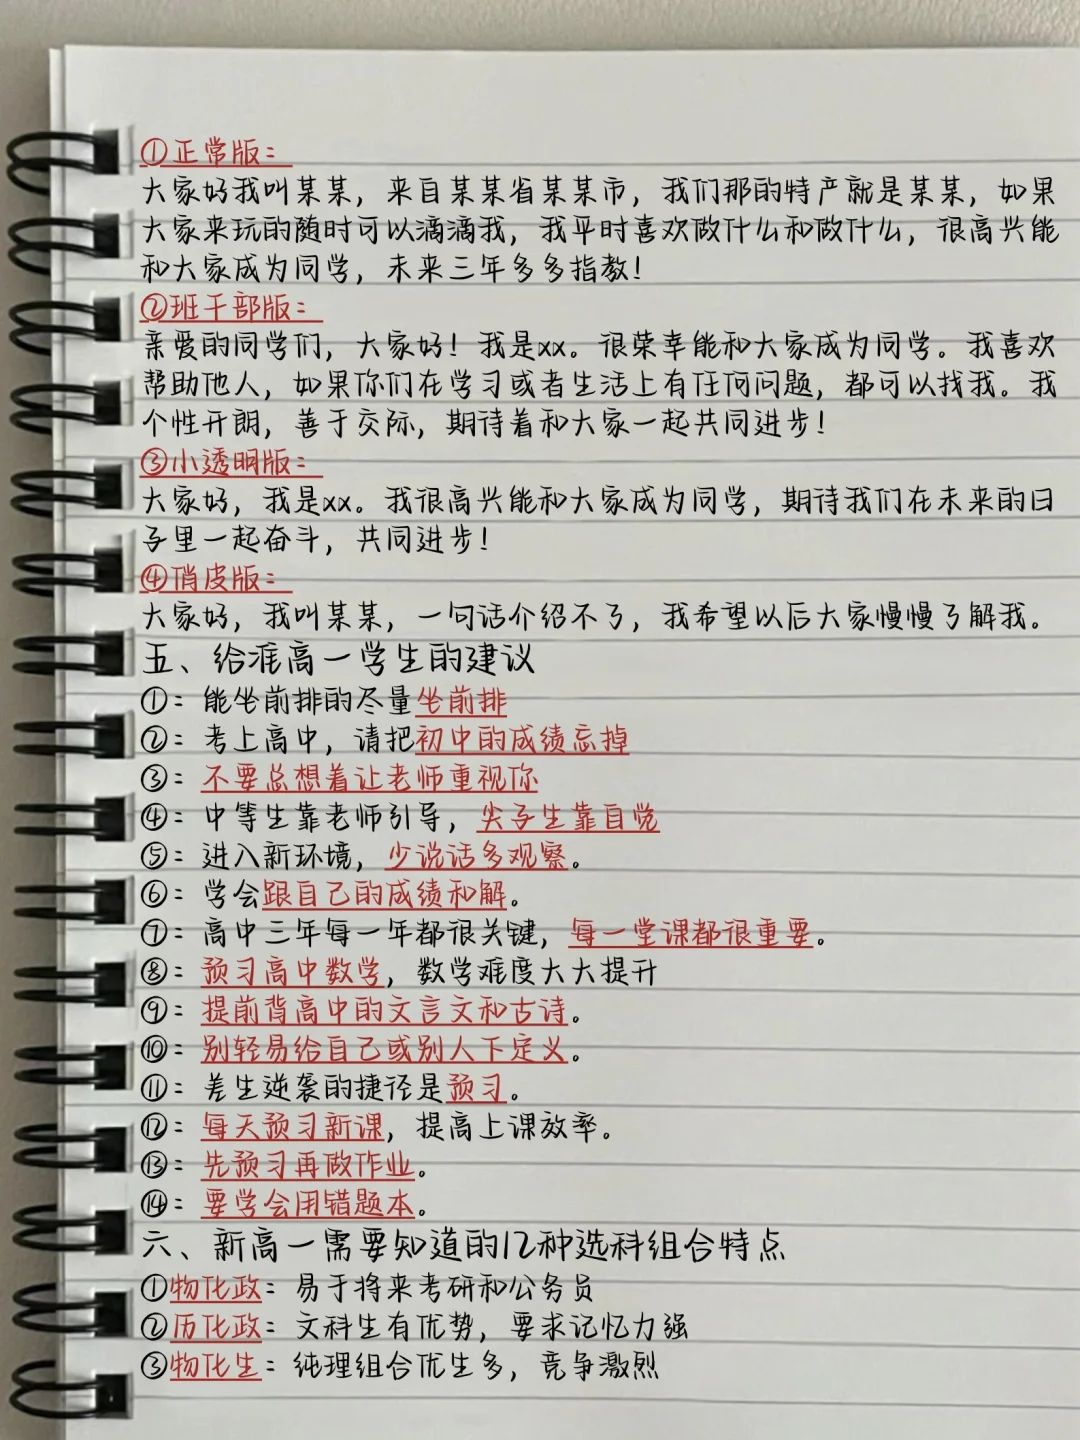 ①正常版：
大家好我叫某某，来自某某省某某市，我们那的特产就是某某，如果
大家来玩的随时可以滴滴我，我平时喜欢做什么和做什么，很高兴能
和大家成为同学，未来三年多多指教！
②班干部版：
亲爱的同学们，大家好！我是xx。很荣幸能和大家成为同学。我喜欢
帮助他人，如果你们在学习或者生活上有任何问题，都可以找我。我
个性开朗，善于交际，期待着和大家一起共同进步！
③小透明版：
大家好，我是xx。我很高兴能和大家成为同学，期待我们在未来的日
子里一起奋斗，共同进步！
④俏皮版：
大家好，我叫某某，一句话介绍不了，我希望以后大家慢慢了解我。
五、给准高一学生的建议
①：能坐前排的尽量坐前排
②：考上高中，请把初中的成绩忘掉
③：不要总想着让老师重视你
④：中等生靠老师引导，尖子生靠自觉
⑤：进入新环境，少说话多观察。
⑥：学会跟自己的成绩和解。
⑦：高中三年每一年都很关键，每一堂课都很重要。
⑧：预习高中数学，数学难度大大提升
⑨：提前背高中的文言文和古诗。
⑩：别轻易给自己或别人下定义。
⑪：差生逆袭的捷径是预习。
⑫：每天预习新课，提高上课效率。
⑬：先预习再做作业。
⑭：要学会用错题本。
六、新高一需要知道的12种选科组合特点
①物化政：易于将来考研和公务员
②历化政：文科生有优势，要求记忆力强
③物化生：纯理组合优生多，竞争激烈